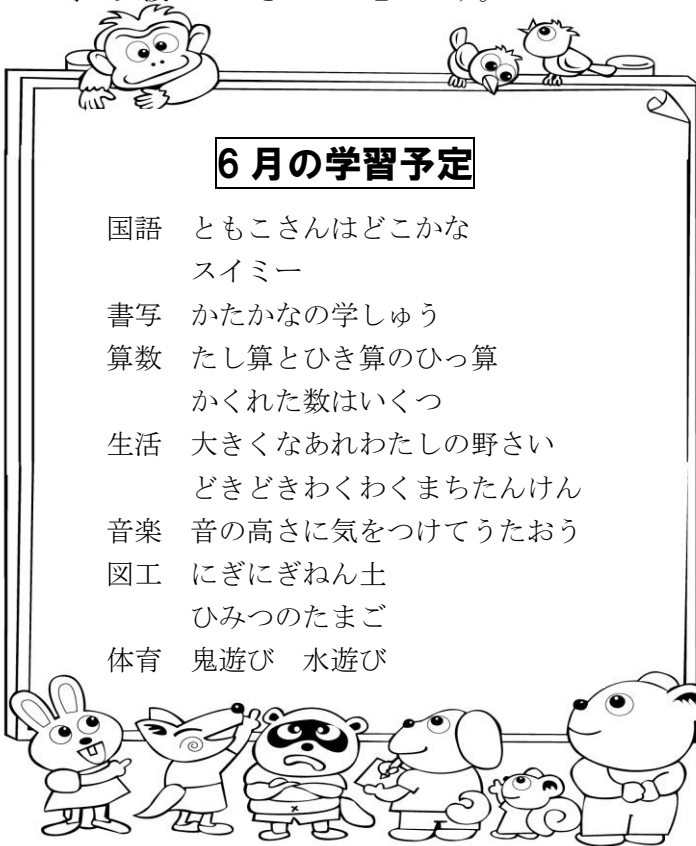 6月の学習予定
国語 ともこさんはどこかな
スイミー
書写 かたかなの学しゅう
算数 たし算とひき算のひっ算
かくれた数はいくつ
生活 大きくなあれわたしの野さい
どきどきわくわくまちたんけん
音楽 音の高さに気をつけてうたおう
図工 にぎにぎねん土
ひみつのたまご
体育 鬼遊び 水遊び